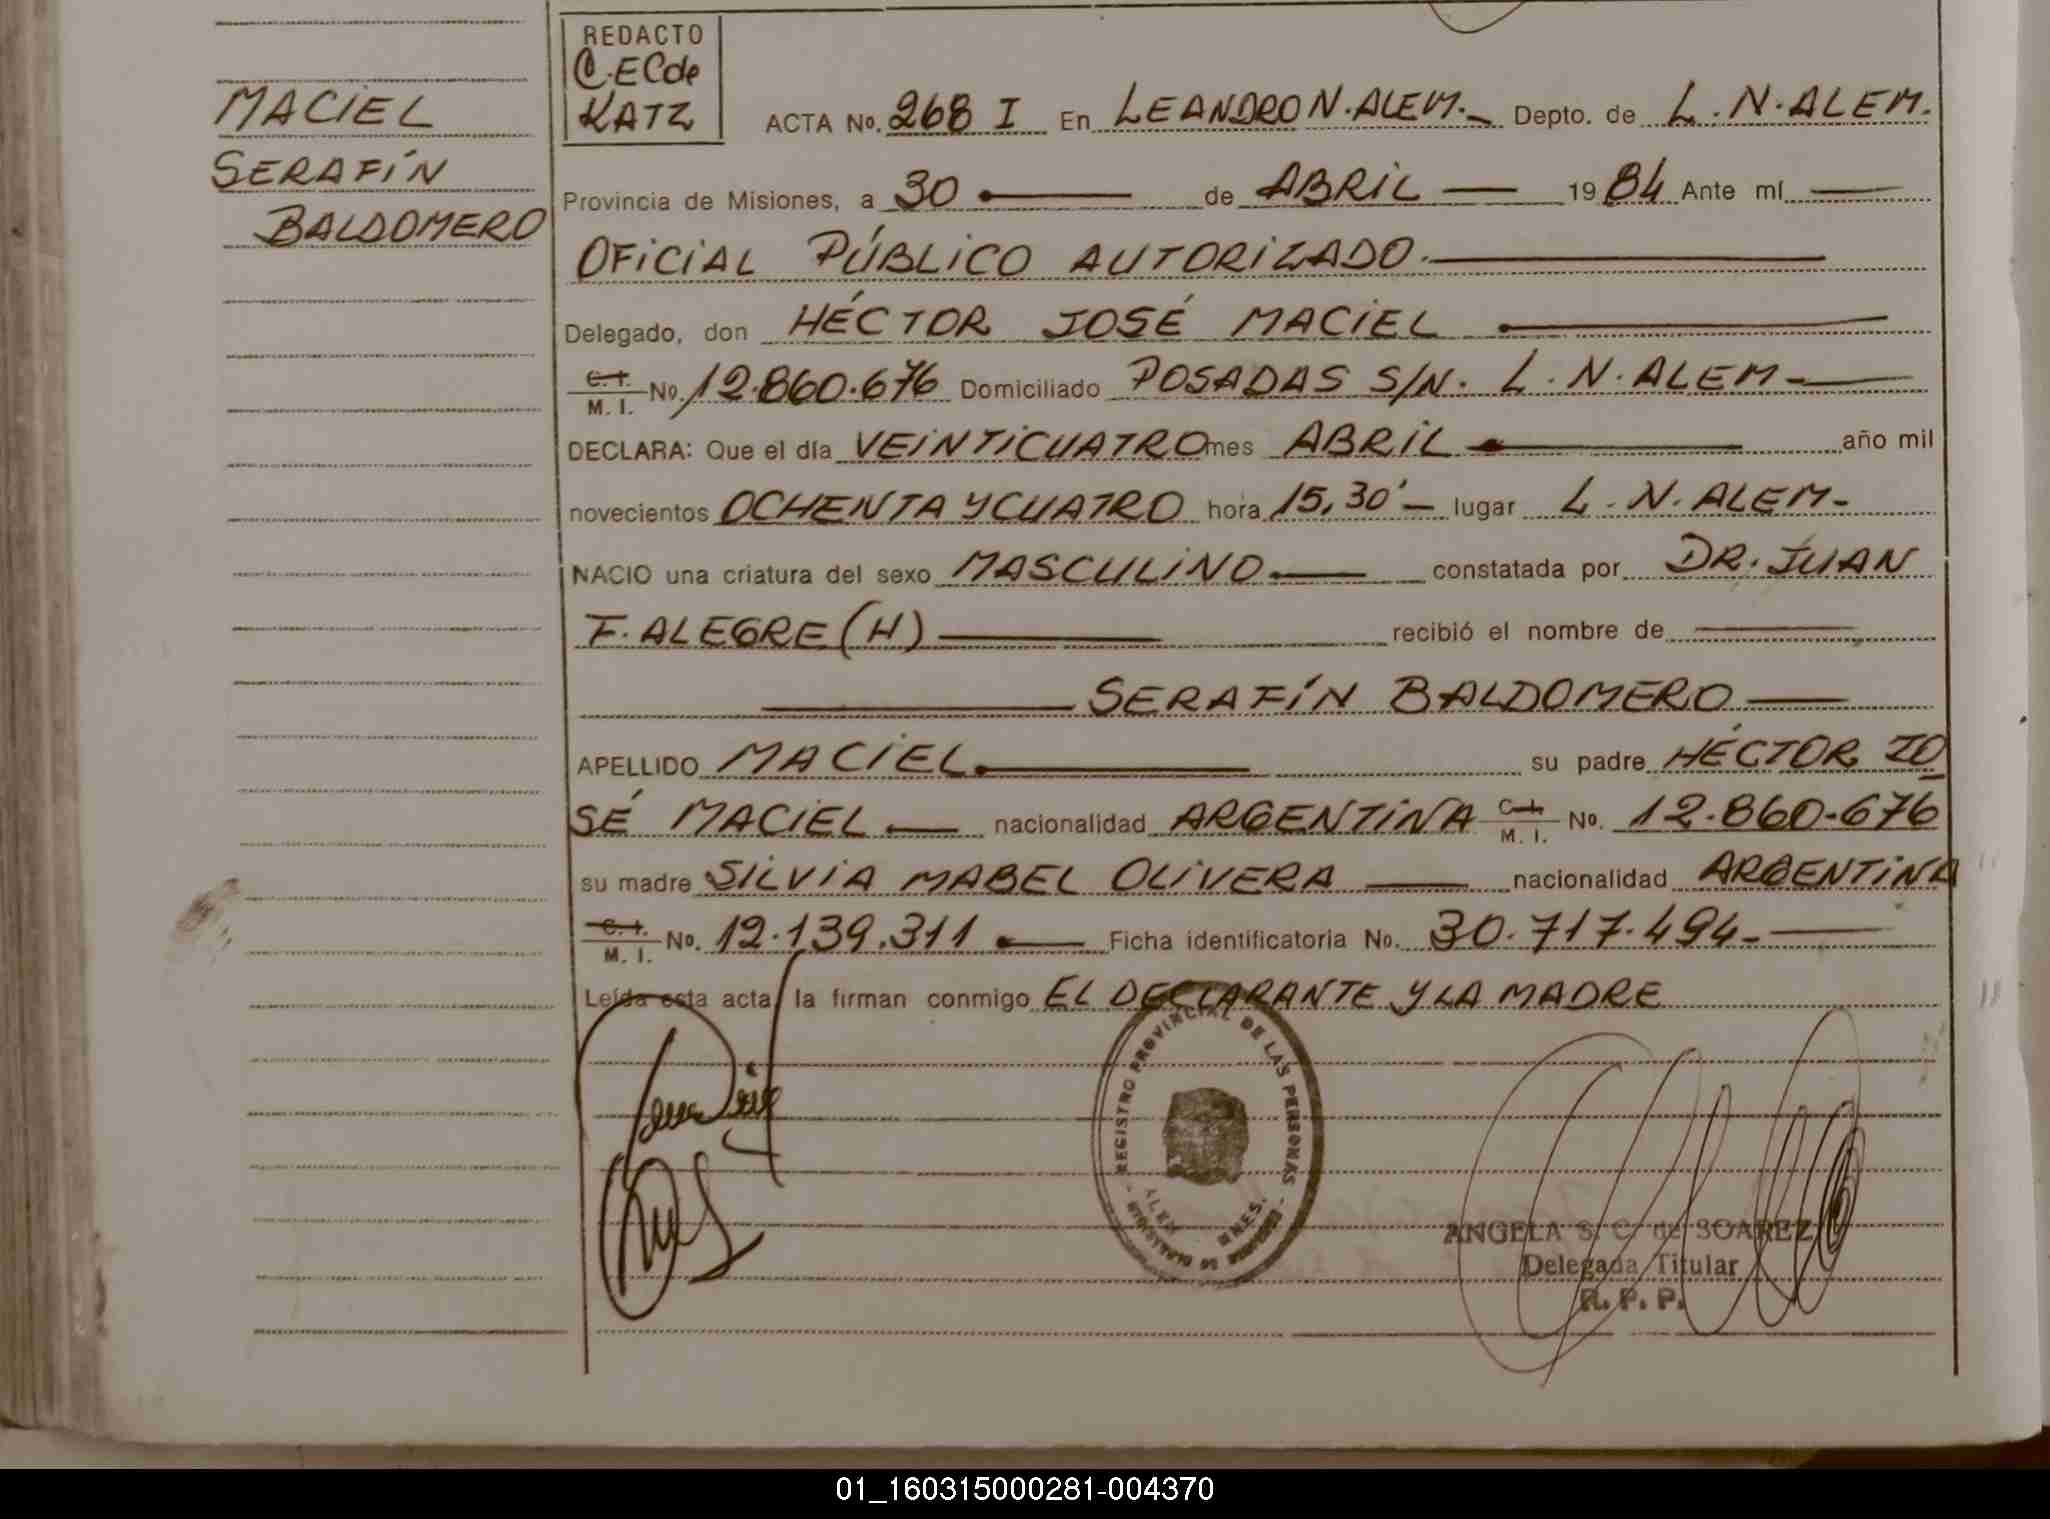 MACIEL
SERAFÍN
BALDOMERO
REDACTO
C.ECde
KATZ
ACTA No. 268 I En LEANDRO N. ALEM. Depto. de L. N. ALEM.
Provincia de Misiones, a 30 de ABRIL 1984 Ante mí
OFICIAL PÚBLICO AUTORIZADO.
Delegado, don HÉCTOR JOSÉ MACIEL
C. I.
M. I. No. 12.860.676 Domiciliado POSADAS S/N. L. N. ALEM-
DECLARA: Que el día VEINTICUATRO mes ABRIL año mil
novecientos OCHENTA Y CUATRO hora 15,30' lugar L. N. ALEM-
NACIO una criatura del sexo MASCULINO constatada por DR. JUAN
F. ALEGRE (H) recibió el nombre de
SERAFÍN BALDOMERO
APELLIDO MACIEL su padre HÉCTOR JO
SÉ MACIEL nacionalidad ARGENTINA C. I. M. I. No. 12.860.676
su madre SILVIA MABEL OLIVERA nacionalidad ARGENTINA
C. I.
M. I. No. 12.139.311 Ficha identificatoria No. 30.717.494-
Leída esta acta, la firman conmigo EL DECLARANTE Y LA MADRE
REGISTRO PROVINCIAL DE LAS PERSONAS
ALEM MNES.
ANGELA S. C. de SOAREZ
Delegada Titular
R. P. P.
01_160315000281-004370